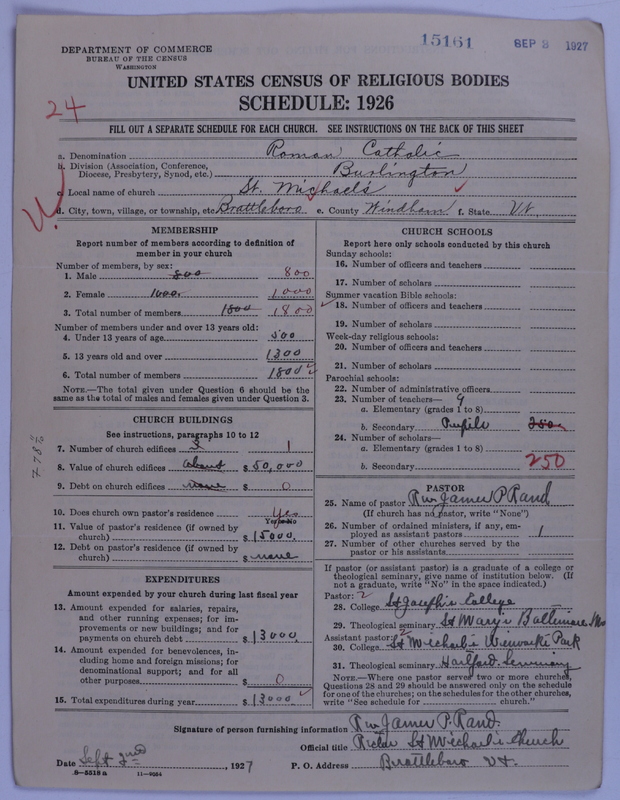 15161 SEP 3 1927
DEPARTMENT OF COMMERCE
BUREAU OF THE CENSUS
WASHINGTON
UNITED STATES CENSUS OF RELIGIOUS BODIES
SCHEDULE: 1926
24
FILL OUT A SEPARATE SCHEDULE FOR EACH CHURCH. SEE INSTRUCTIONS ON THE BACK OF THIS SHEET
a. Denomination Roman Catholic
b. Division (Association, Conference,
Diocese, Presbytery, Synod, etc.) Burlington
c. Local name of church St. Michaels
d. City, town, village, or township, etc. Brattleboro e. County Windham f. State Vt.
MEMBERSHIP
Report number of members according to definition of
member in your church
Number of members, by sex:
1. Male 800 800
2. Female 1000. 1000
3. Total number of members 1800 1800
Number of members under and over 13 years old:
4. Under 13 years of age 500
5. 13 years old and over 1300
6. Total number of members 1800
NOTE.—The total given under Question 6 should be the
same as the total of males and females given under Question 3.
CHURCH BUILDINGS
See instructions, paragraphs 10 to 12
7. Number of church edifices 1
8. Value of church edifices about $ 50,000
9. Debt on church edifices none $ 0
10. Does church own pastor's residence? Yes
Yes or No
11. Value of pastor's residence (if owned by
church) $ 15000.
12. Debt on pastor's residence (if owned by
church) $ none
EXPENDITURES
Amount expended by your church during last fiscal year
13. Amount expended for salaries, repairs,
and other running expenses; for im-
provements or new buildings; and for
payments on church debt $ 13000.
14. Amount expended for benevolences, in-
cluding home and foreign missions; for
denominational support; and for all
other purposes $ 0
15. Total expenditures during year $ 13000
CHURCH SCHOOLS
Report here only schools conducted by this church
Sunday schools:
16. Number of officers and teachers
17. Number of scholars
Summer vacation Bible schools:
18. Number of officers and teachers
19. Number of scholars
Week-day religious schools:
20. Number of officers and teachers
21. Number of scholars
Parochial schools:
22. Number of administrative officers
23. Number of teachers— 9
a. Elementary (grades 1 to 8)
b. Secondary Pupils 250
24. Number of scholars—
a. Elementary (grades 1 to 8)
b. Secondary 250
PASTOR
25. Name of pastor Rev James P. Rand
(If church has no pastor, write "None")
26. Number of ordained ministers, if any, em-
ployed as assistant pastors 1
27. Number of other churches served by the
pastor or his assistants
If pastor (or assistant pastor) is a graduate of a college or
theological seminary, give name of institution below. (If
not a graduate, write "No" in the space indicated.)
Pastor: 2
28. College St Joseph's College
29. Theological seminary St Mary's Baltimore Md
Assistant pastor: 2
30. College St Michael's Winooski Park
31. Theological seminary Hartford Seminary
NOTE.—Where one pastor serves two or more churches,
Questions 28 and 29 should be answered only on the schedule
for one of the churches; on the schedules for the other churches,
write "See schedule for church."
Signature of person furnishing information Rev James P. Rand.
Official title Rector St Michael's Church
Date Sept 2nd, 1927 P. O. Address Brattleboro Vt.
8-5518 a 11-9064